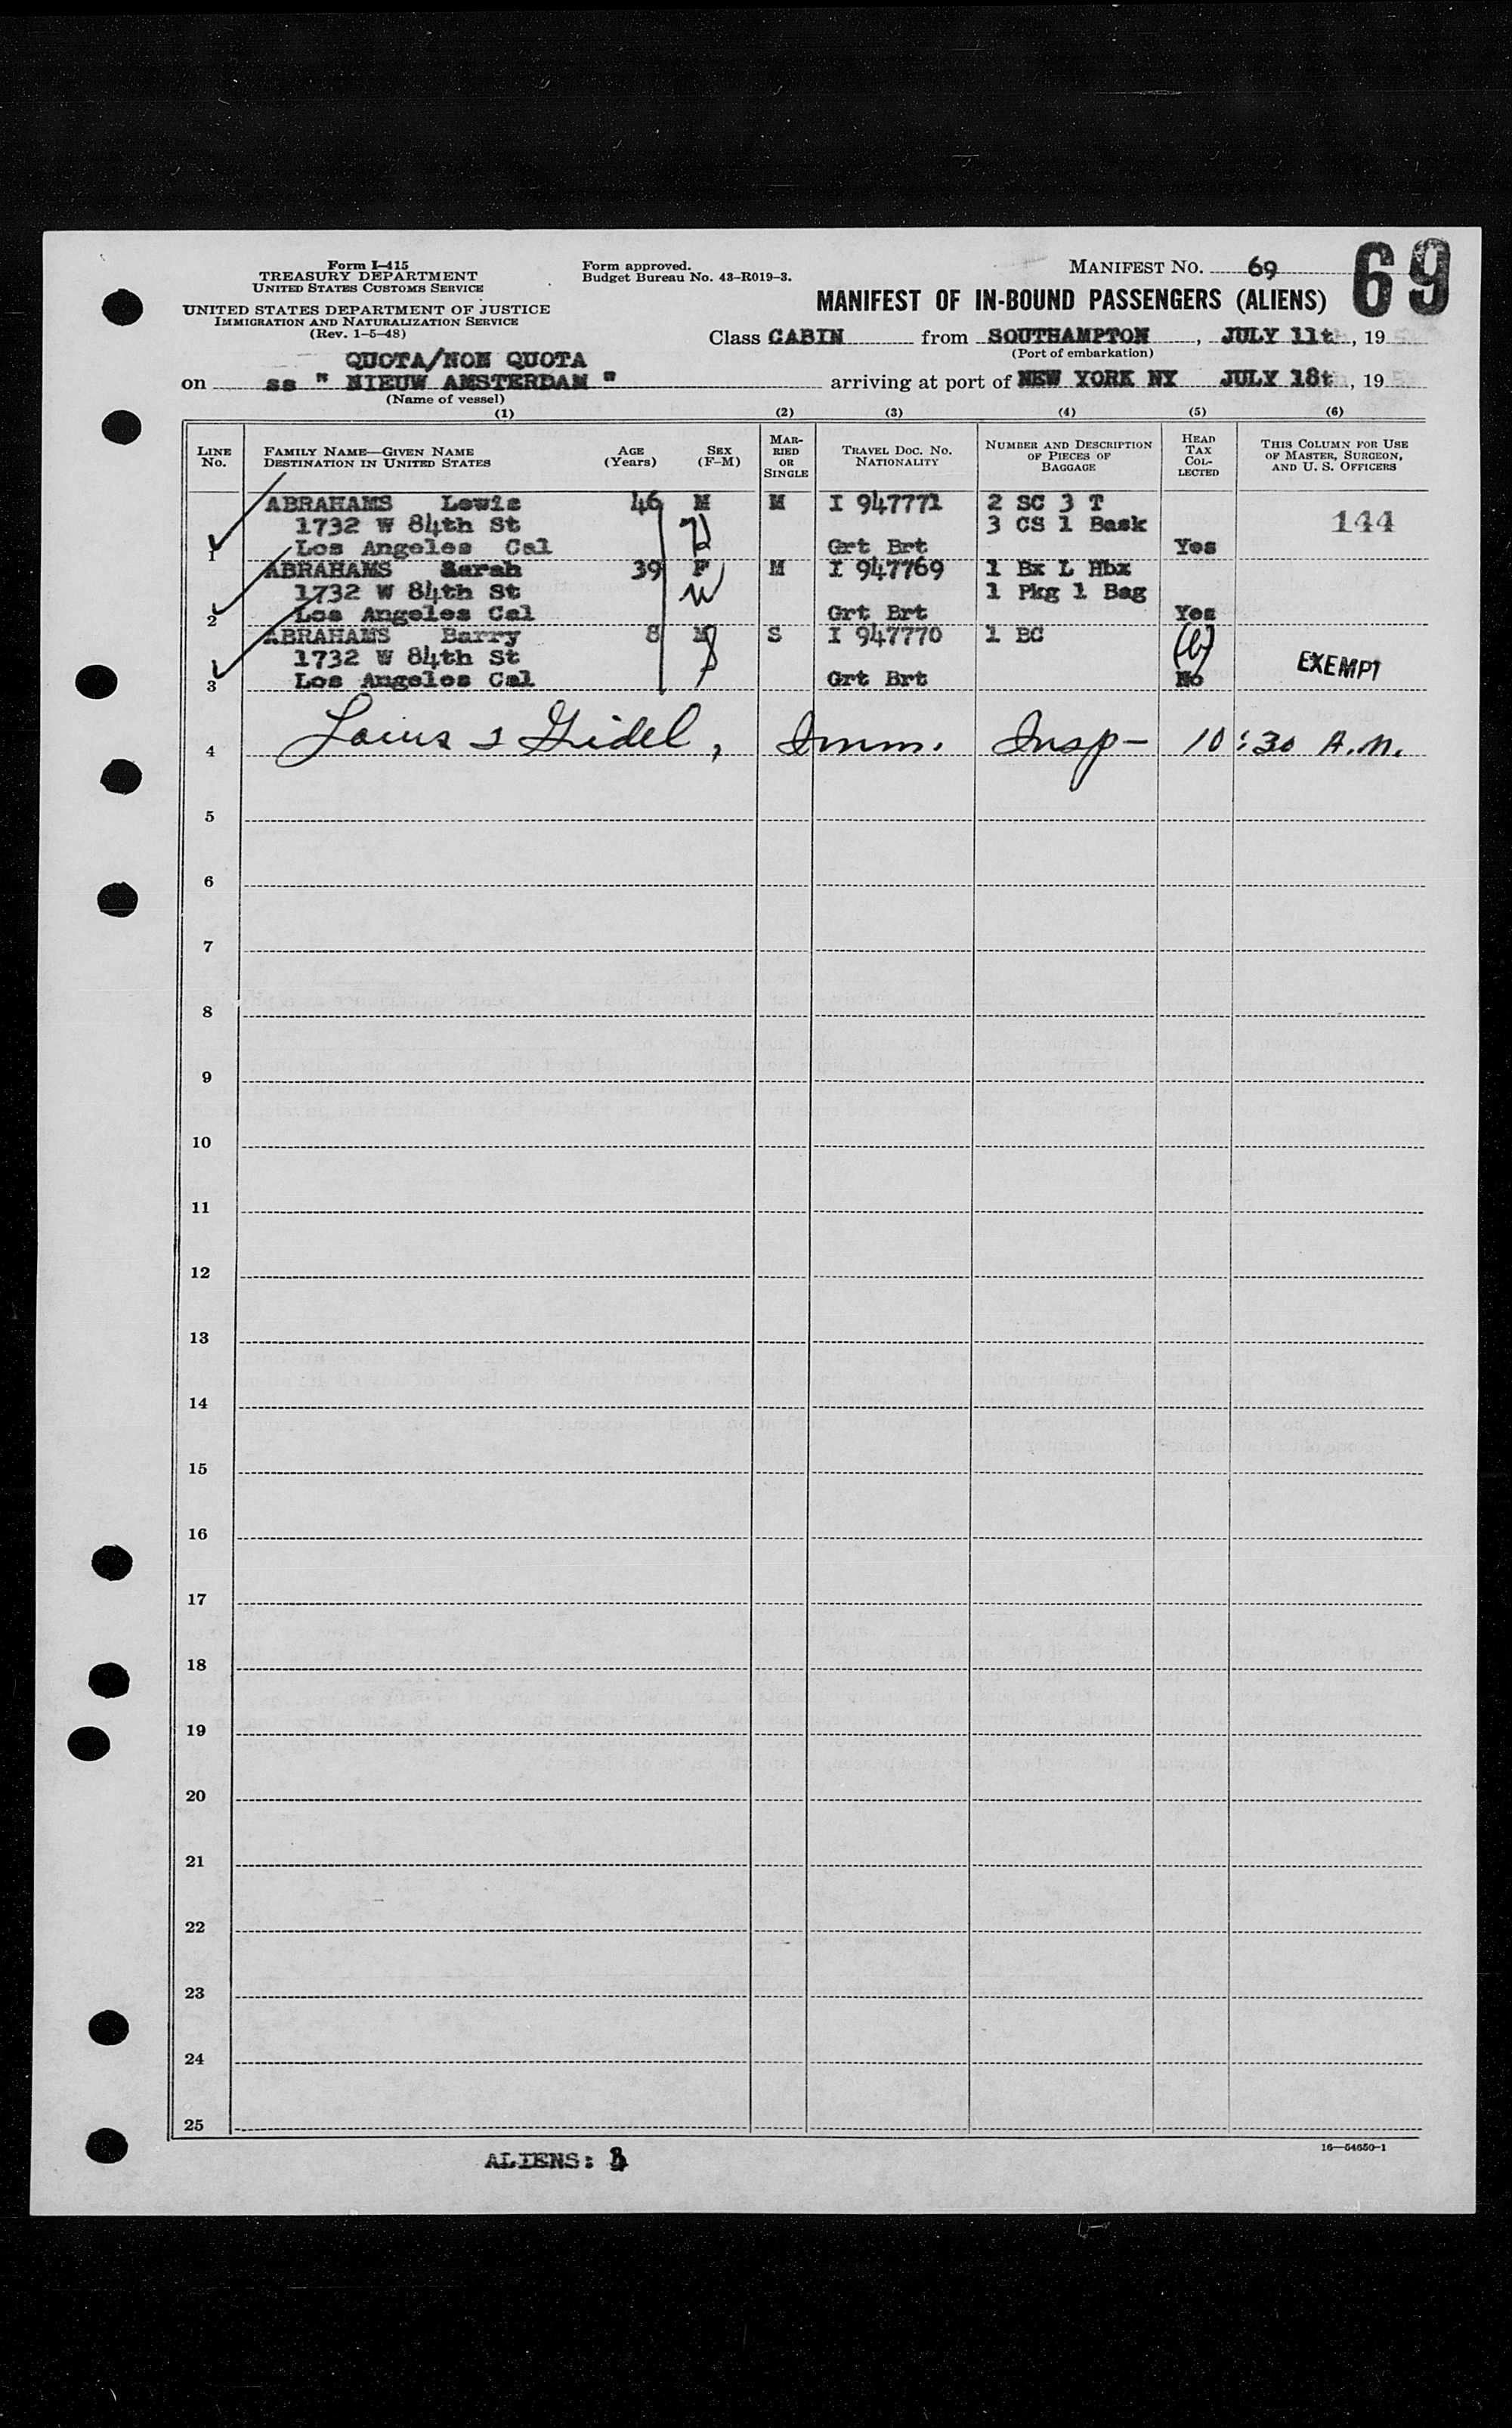 Form I-415
TREASURY DEPARTMENT
UNITED STATES CUSTOMS SERVICE
UNITED STATES DEPARTMENT OF JUSTICE
IMMIGRATION AND NATURALIZATION SERVICE
(Rev. 1-5-48)
Form approved.
Budget Bureau No. 43-R019-3.
MANIFEST NO. 69
69
MANIFEST OF IN-BOUND PASSENGERS (ALIENS)
Class CABIN from SOUTHAMPTON, JULY 11t, 19
(Port of embarkation)
QUOTA/NON QUOTA
on ss " NIEUW AMSTERDAM " arriving at port of NEW YORK NY JULY 18t, 19
(Name of vessel)
(1) (2) (3) (4) (5) (6)
LINE No. FAMILY NAME—GIVEN NAME DESTINATION IN UNITED STATES AGE (Years) SEX (F-M) MARRIED OR SINGLE TRAVEL DOC. NO. NATIONALITY NUMBER AND DESCRIPTION OF PIECES OF BAGGAGE HEAD TAX COLLECTED THIS COLUMN FOR USE OF MASTER, SURGEON, AND U. S. OFFICERS
ABRAHAMS Lewis 46 M M I 947771 2 SC 3 T
1732 W 84th St 3 CS 1 Bask 144
1 Los Angeles Cal Grt Brt Yes
ABRAHAMS Sarah 39 F M I 947769 1 Bx L Hbx
1732 W 84th St W 1 Pkg 1 Bag
2 Los Angeles Cal Grt Brt Yes
ABRAHAMS Barry 8 M S I 947770 1 BC
1732 W 84th St (b) EXEMPT
3 Los Angeles Cal Grt Brt No
4 Imm. Insp- 10:30 A.M.
5
6
7
8
9
10
11
12
13
14
15
16
17
18
19
20
21
22
23
24
25
ALIENS: 3
16-54650-1